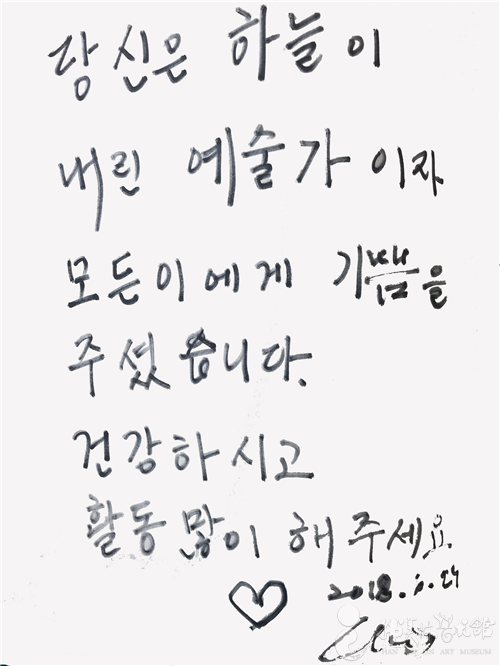 당신은 하늘이
내린 예술가 이자
모든이에게 기쁨을
주셨습니다.
건강하시고
활동 많이 해주세요.
2018.
ART MUSEUM